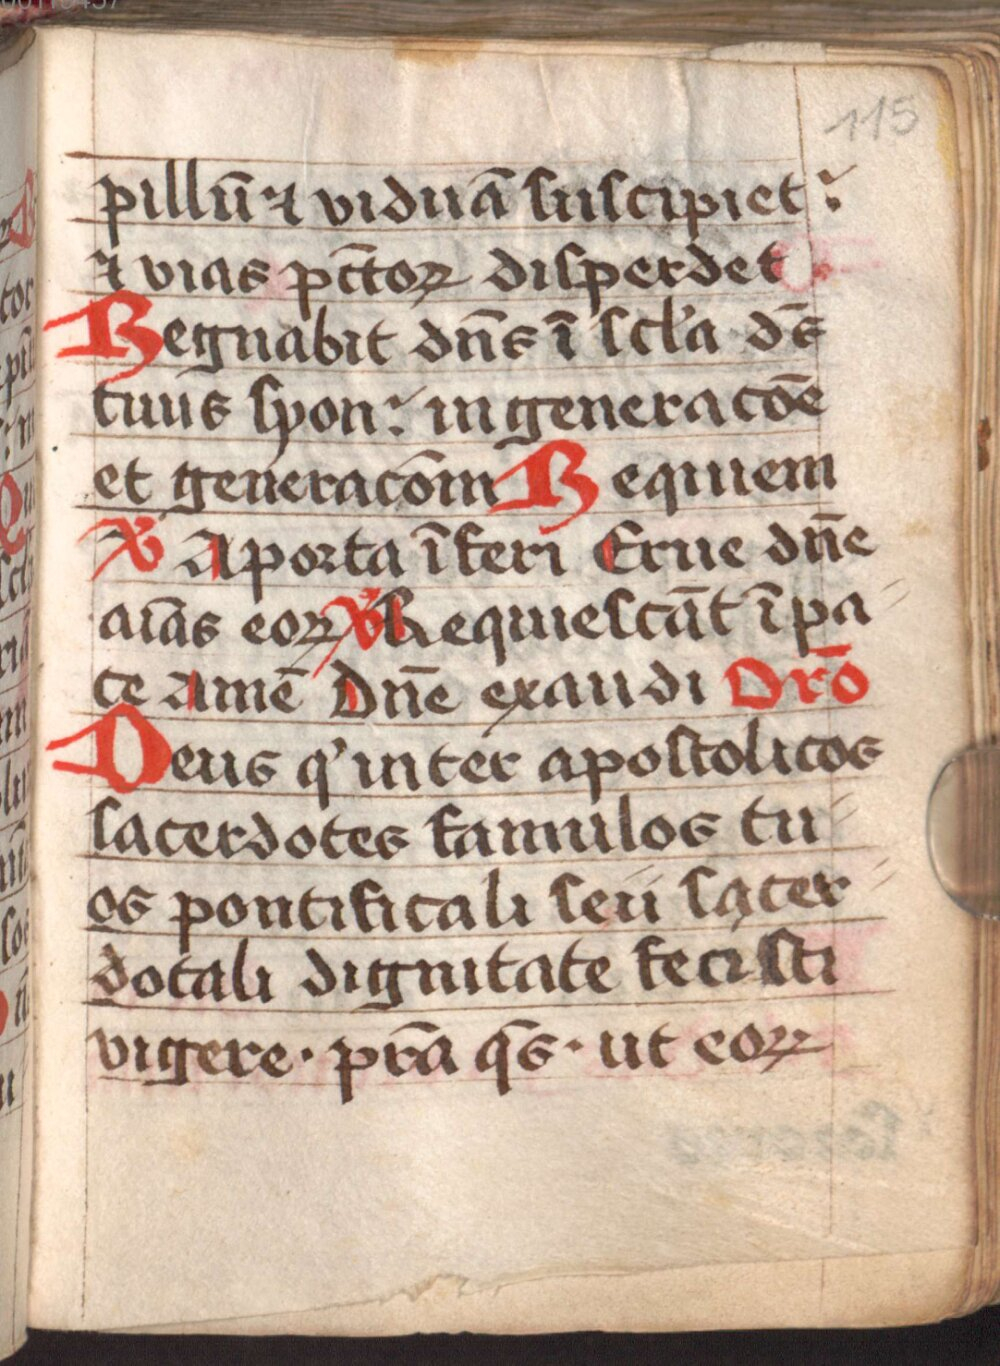 115
pillū ⁊ viduā suscipiet:
⁊ vias pctoꝝ disperdet
Regnabit dn̄s ī scl'a ds̄
tuus syon: in generacōe
et generacōm Requiem
℣ A porta īferi Erue dn̄e
aīas eoꝝ ℣ Requiescāt ī pa
ce amē Dn̄e exaudi Orō
Deus q' inter apostolicos
sacerdotes famulos tu
os pontificali seu sacer
dotali dignitate fecisti
vigere· pra̅ qs̄· ut eoꝝ